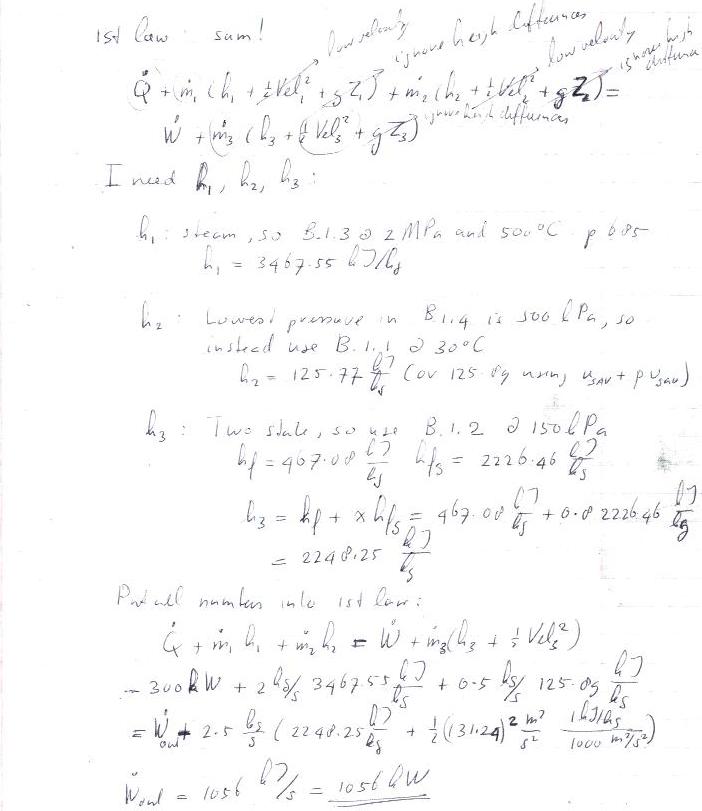 1st law: sum!
low velocity
ignore heigh differences
low velocity
ignore heigh differences
Q̇ + ṁ₁ (h₁ + ½Vel₁² + gZ₁) + ṁ₂ (h₂ + ½Vel₂² + gZ₂) =
Ẇ + ṁ₃ (h₃ + ½ Vel₃² + gZ₃)
ignore heigh differences
I need h₁, h₂, h₃:
h₁: steam, so B.1.3 @ 2 MPa and 500°C p 685
h₁ = 3467.55 kJ/kg
h₂: Lowest pressure in B 1.4 is 500 kPa, so
instead use B.1.1 @ 30°C
h₂ = 125.77 kJ/kg (or 125.89 using u + p v)
h₃: Two state, so use B.1.2 @ 150 kPa
hf = 467.08 kJ/kg hfg = 2226.46 kJ/kg
h₃ = hf + x hfg = 467.08 kJ/kg + 0.8 2226.46 kJ/kg
= 2248.25 kJ/kg
Put all numbers into 1st law:
Q̇ + ṁ₁ h₁ + ṁ₂ h₂ = Ẇ + ṁ₃(h₃ + ½ Vel₃²)
- 300 kW + 2 kg/s 3467.55 kJ/kg + 0.5 kg/s 125.89 kJ/kg
= Ẇout + 2.5 kg/s (2248.25 kJ/kg + ½ (131.24)² m²/s² 1 kJ/kg / 1000 m²/s²)
Ẇout = 1056 kJ/s = 1056 kW